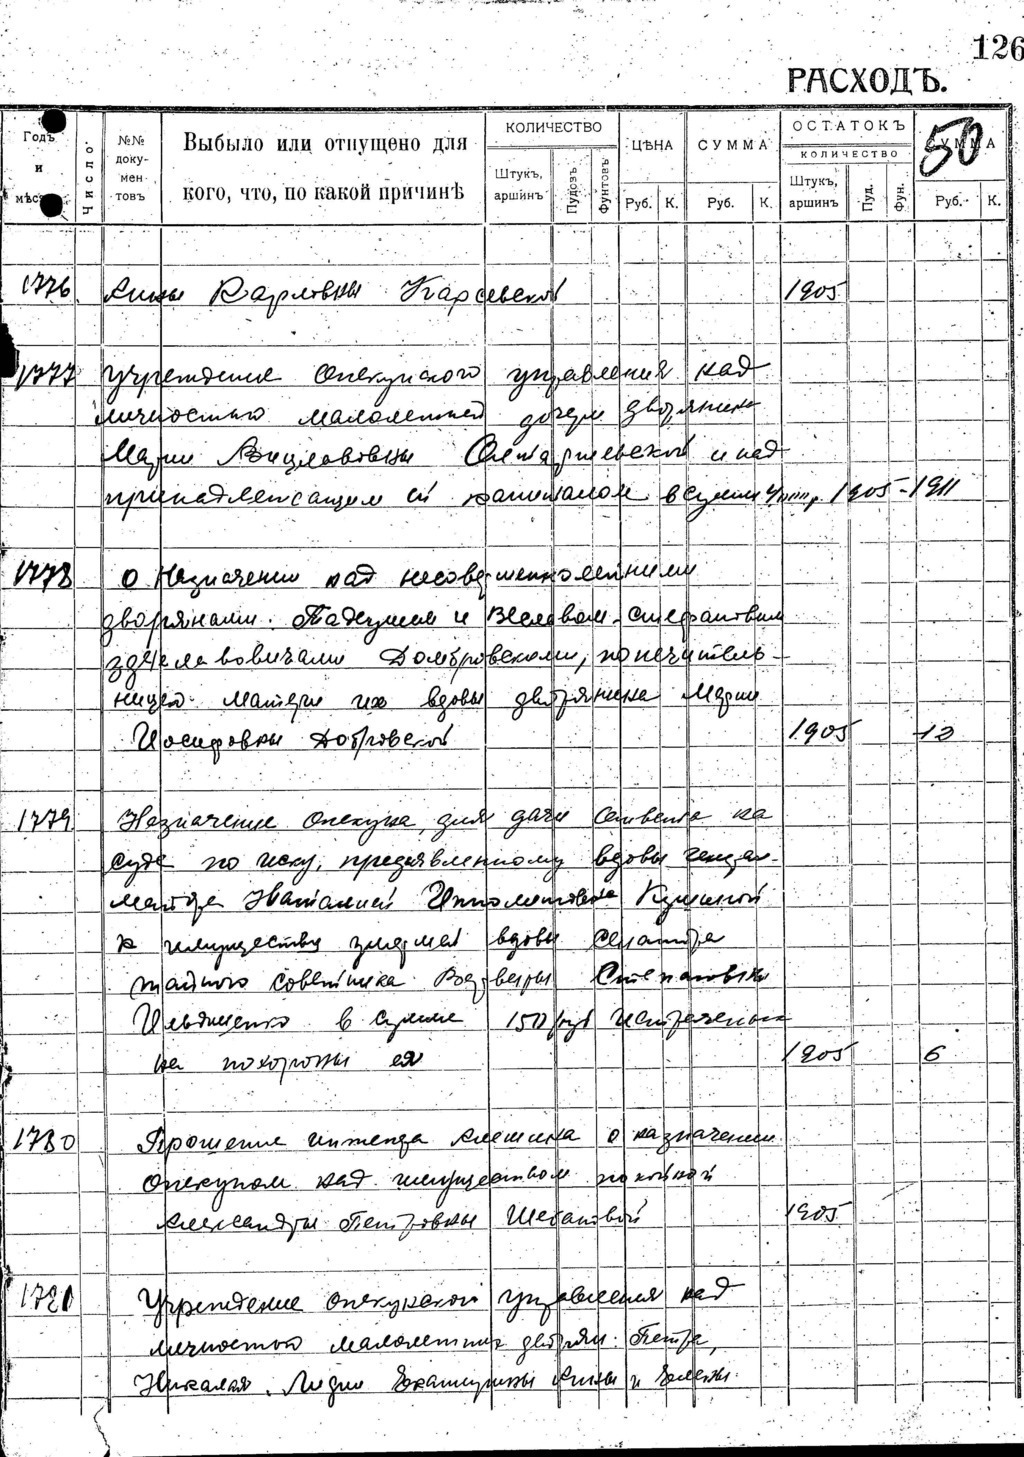 126
РАСХОДЪ.
Годъ и мѣс
Число
№№ доку-мен-товъ
Выбыло или отпущено для кого, что, по какой причинѣ
КОЛИЧЕСТВО
Штукъ, аршинъ
Пудовъ
Фунтовъ
ЦѢНА
Руб. К.
СУММА
Руб. К.
ОСТАТОКЪ
КОЛИЧЕСТВО
Штукъ, аршинъ
Пуд.
Фун.
СУММА
Руб. К.
50
1776 Анны Карловны Карсевской 1905
1777 учреждение опекунского управления над
личностью малолетней дочери дворянина
Марии Вацлавовны и над
принадлежащем ей капиталом в сумме 1905-1911
1778 о Назначении над несовершеннолетними
дворянами Тадеушем и
Здиславовичами Домбровскими, попечитель-
ницей матери их вдовы дворянина Марии
Иосифовны Добровской 1905 12
1779 Назначение опекуна для дачи ответа на
суде по иску, предъявленному вдовы генерал-
майора Наталией Ипполитовна
к имуществу умершей вдовы сенатора
тайного советника Веры Степановны
Ильяшенко в сумме 1500 руб истраченых
на похороны ея 1905 6
1780 Прошение инженера Алешина о назначении
опекуном над имуществом покойной
Александры Петровны 1905
1781 Учреждение опекунской управления над
личностью малолетних дворян Петра,
Николая, Лидии Екатерины Анны и Елены